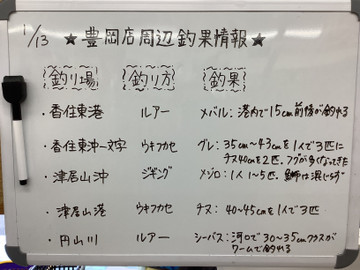 1/13 ★豊岡店周辺釣果情報★
釣り場 釣り方 釣果
・香住東港 ルアー メバル:港内で15cm前後が釣れる
・香住東沖一文字 ウキフカセ グレ:35cm~43cmを1人で3匹に
チヌ40cmを2匹。フグが多くなってきた
・津居山沖 ジギング メジロ:1人1~5匹。鰤は混じらず
・津居山港 ウキフカセ チヌ:40~45cmを1人で3匹
・円山川 ルアー シーバス:河口で30~35cmクラスが
ワームで釣れる